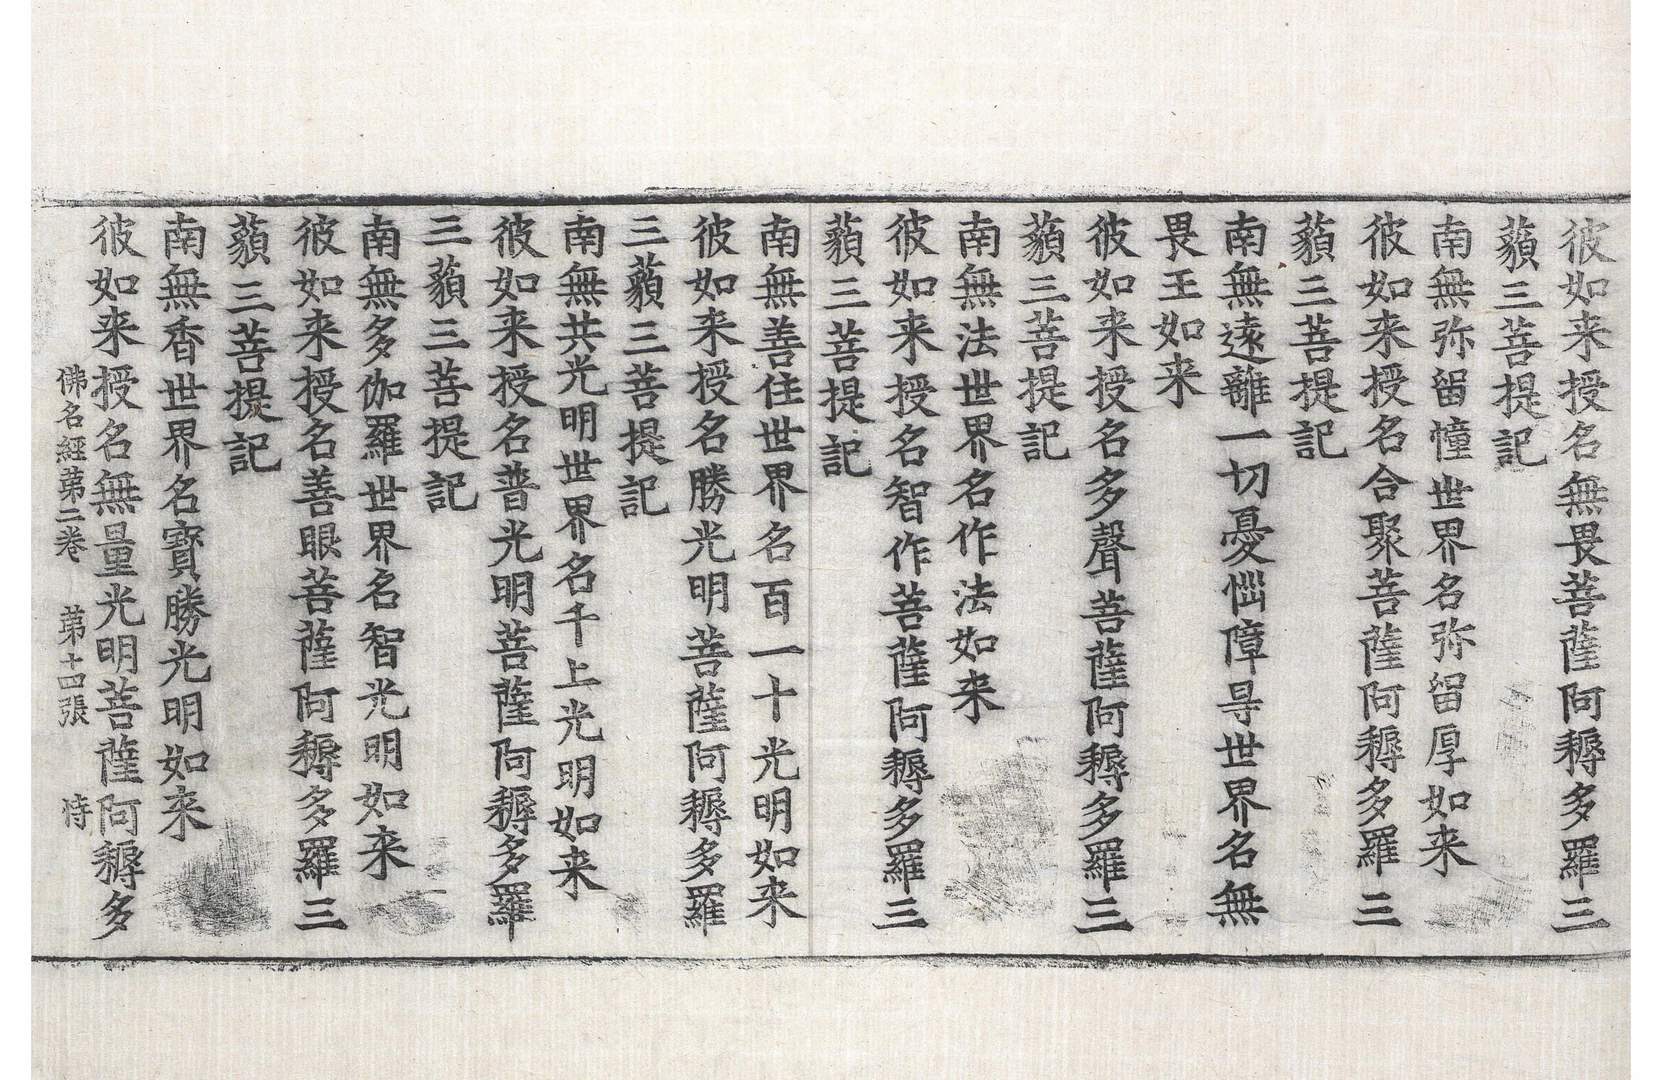 彼如来授名無畏菩薩阿耨多羅三
藐三菩提記
南無弥留幢世界名弥留厚如来
彼如来授名合聚菩薩阿耨多羅三
藐三菩提記
南無遠離一切憂惱障㝵世界名無
畏王如来
彼如来授名多聲菩薩阿耨多羅三
藐三菩提記
南無法世界名作法如来
彼如来授名智作菩薩阿耨多羅三
藐三菩提記
南無善住世界名百一十光明如来
彼如来授名勝光明菩薩阿耨多羅
三藐三菩提記
南無共光明世界名千上光明如来
彼如来授名普光明菩薩阿耨多羅
三藐三菩提記
南無多伽羅世界名智光明如来
彼如来授名善眼菩薩阿耨多羅三
藐三菩提記
南無香世界名寶勝光明如来
彼如来授名無量光明菩薩阿耨多
佛名經苐二卷 苐十四張 恃